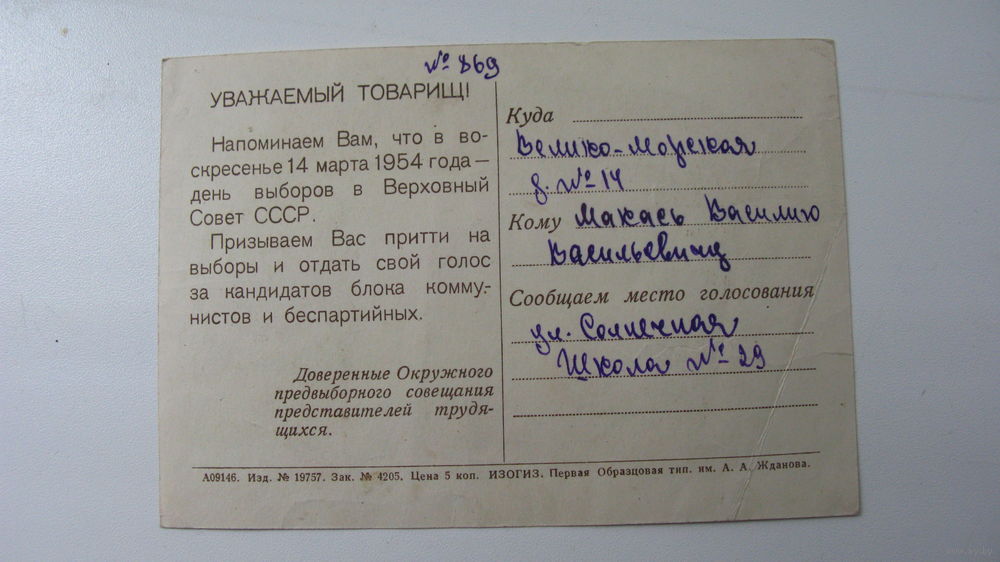 № 869
УВАЖАЕМЫЙ ТОВАРИЩ!
Напоминаем Вам, что в во-
скресенье 14 марта 1954 года —
день выборов в Верховный
Совет СССР.
Призываем Вас притти на
выборы и отдать свой голос
за кандидатов блока комму-
нистов и беспартийных.
Доверенные Окружного
предвыборного совещания
представителей трудя-
щихся.
Куда
Велико-Морская
д. № 14
Кому Макась Василию
Васильевичу
Сообщаем место голосования
ул. Солнечная
Школа № 29
А09146. Изд. № 19757. Зак. № 4205. Цена 5 коп. ИЗОГИЗ. Первая Образцовая тип. им. А. А. Жданова.